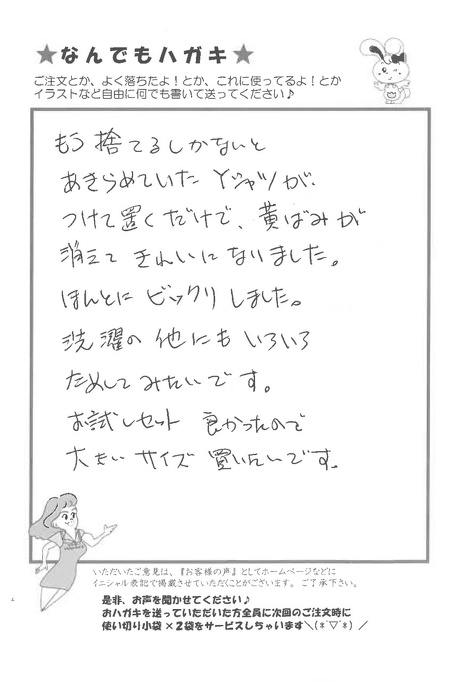 ★なんでもハガキ★
ご注文とか、よく落ちたよ！とか、これに使ってるよ！とか
イラストなど自由に何でも書いて送ってください♪
もう捨てるしかないと
あきらめていたYシャツが、
つけて置くだけで、黄ばみが
消えてきれいになりました。
ほんとにビックリしました。
洗濯の他にもいろいろ
ためしてみたいです。
お試しセット 良かったので
大きいサイズ買いたいです。
いただいたご意見は、『お客様の声』としてホームページなどに
イニシャル表記で掲載させていただくことがございます。ご了承下さい。
是非、お声を聞かせてください♪
おハガキを送っていただいた方全員に次回のご注文時に
使い切り小袋×2袋をサービスしちゃいます＼(*^▽^*)／